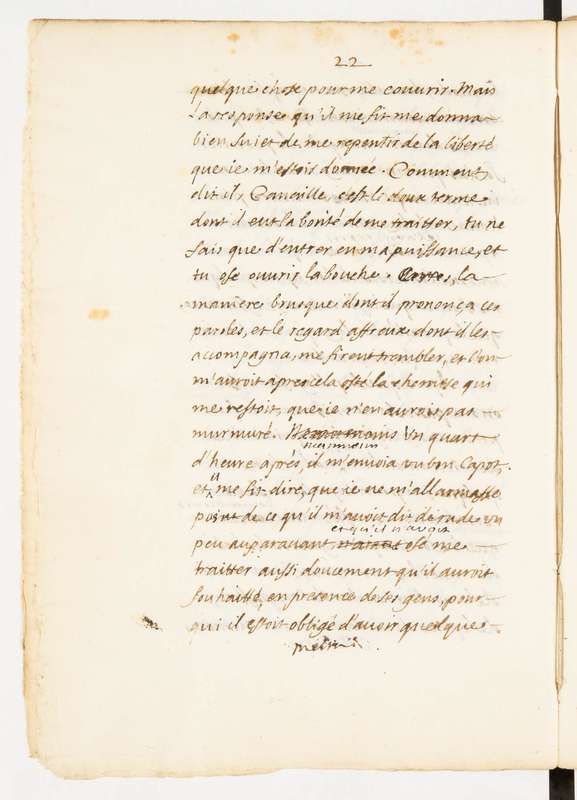 22
quelque chose pour me couurir. Mais
la response qu'il me fit me donna
bien suiet de me repentir de la liberté
que ie m'estois donnée. Comment,
dit il, Canaille, c'est le doux terme
dont il eut la bonté de me traitter, tu ne
fais que d'entrer en ma puissance, et
tu ose ouurir la bouche. Certes, la
maniere brusque dont il prononça ces
paroles, et le regard affreux dont il les
accompagna, me firent trembler, et l'on
m'auroit apres cela osté la chemise qui
me restoit, que ie n'en aurois pas
murmuré. Neantmoins Un quart
neanmoins
d'heure aprés, il m'enuoia un bon Capot,
et il me fit dire, que ie ne m'allarmasse
point de ce qu'il m'auoit dit de rude un
et qu'il n'auoit
peu auparauant, n'aiant osé me
traitter aussi doucement qu'il auroit
souhaitté, en presence de ses gens, pour
qui il estoit obligé d'auoir quelque